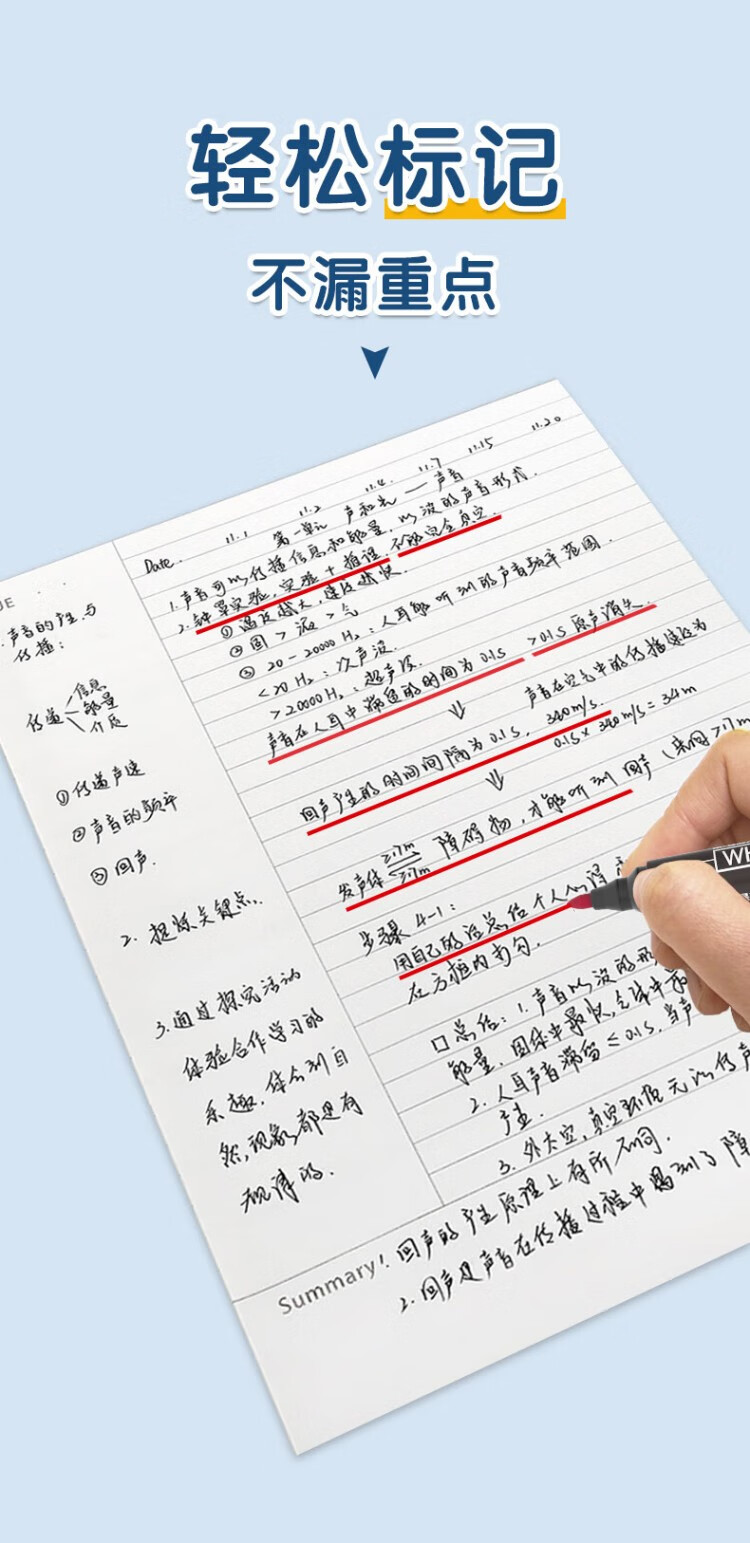 轻松标记
不漏重点
11.1 11.2 11.4. 11.7 11.15 11.20
Date.
第一单元 声和光 — 声音
1.声音可以传播信息和能量,以波的声音形式.
2.钟罩实验,实验+推理,不能完全真空.
①温度越大,速度越快.
②固>液>气
③ 20-20000Hz:人耳能听到的声音频率范围.
<20Hz:次声波.
>20000Hz:超声波.
声音在人耳中滞留的时间为0.1s >0.1s 原声消失
声音在空气中的传播速度为
回声产生的时间间隔为0.1s, 340m/s.
0.1s×340m/s=34m
发声体 ≥17m ≥17m 障碍物,才能听到回声(来回≥17m
步骤4-1:
用自己的话总结个人
在方框内写句.
口总结:1.声音以波的形
能量.固体中最快,气体中最
2.人耳声音滞留≤0.1s,当声
产生.
3.外太空,真空环境无以传声
UE
声音的产生与
传播:
传递 信息 能量 介质
①传递声速
②声音的频率
③回声.
2.提炼关键点...
3.通过探究活动
体验合作学习的
乐趣,体会到自
然,现象都是有
规律的.
Summary!.回声的产生原理上有所不同.
2.回声是声音在传播过程中遇到了障
WH